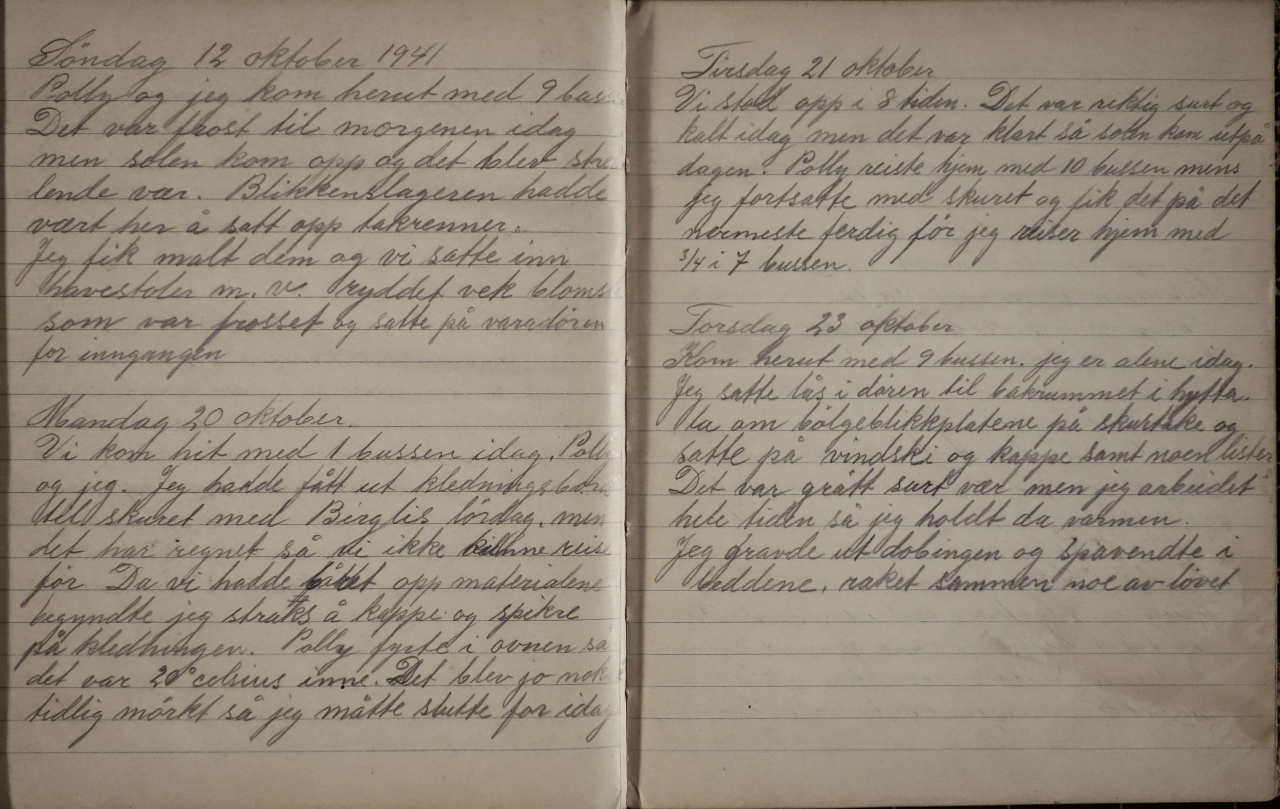 Söndag 12 oktober 1941
Polly og jeg kom herut med 9 buss
Det var frost til morgenen idag
men solen kom opp og det blev stra
lende vær. Blikkenslageren hadde
vært her å satt opp takrenner.
Jeg fik malt dem og vi satte inn
havestoler m. v. ryddet vek blomst
som var frosset og satte på varadören
for inngangen
Mandag 20 oktober.
Vi kom hit med 1 bussen idag, Polly
og jeg. Jeg hadde fått ut kledningsbord
til skuret med Berglis lördag, men
det har regnet så vi ikke kunne reise
för. Da vi hadde båret opp materialene
begyndte jeg straks å kappe og spikre
på kledningen. Polly fyrte i ovnen så
det var 20° celsius inne. Det blev jo nok
tidlig mörkt så jeg måtte slutte for idag
Tirsdag 21 oktober
Vi stod opp i 8 tiden. Det var riktig surt og
kalt idag men det var klart så solen kom utpå
dagen. Polly reiste hjem med 10 bussen mens
jeg fortsatte med skuret og fik det på det
nermeste ferdig för jeg reiser hjem med
3/4 i 7 bussen.
Torsdag 23 oktober
Kom herut med 9 bussen. jeg er alene idag.
Jeg satte lås i dören til bakrummet i hytta.
la om bölgeblikkplatene på skurtake og
satte på vindski og kappe samt noen lister
Det var grått surt vær men jeg arbeidet
hele tiden så jeg holdt da varmen.
Jeg gravde ut dobingen og spavendte i
beddene, raket sammen noe av lövet